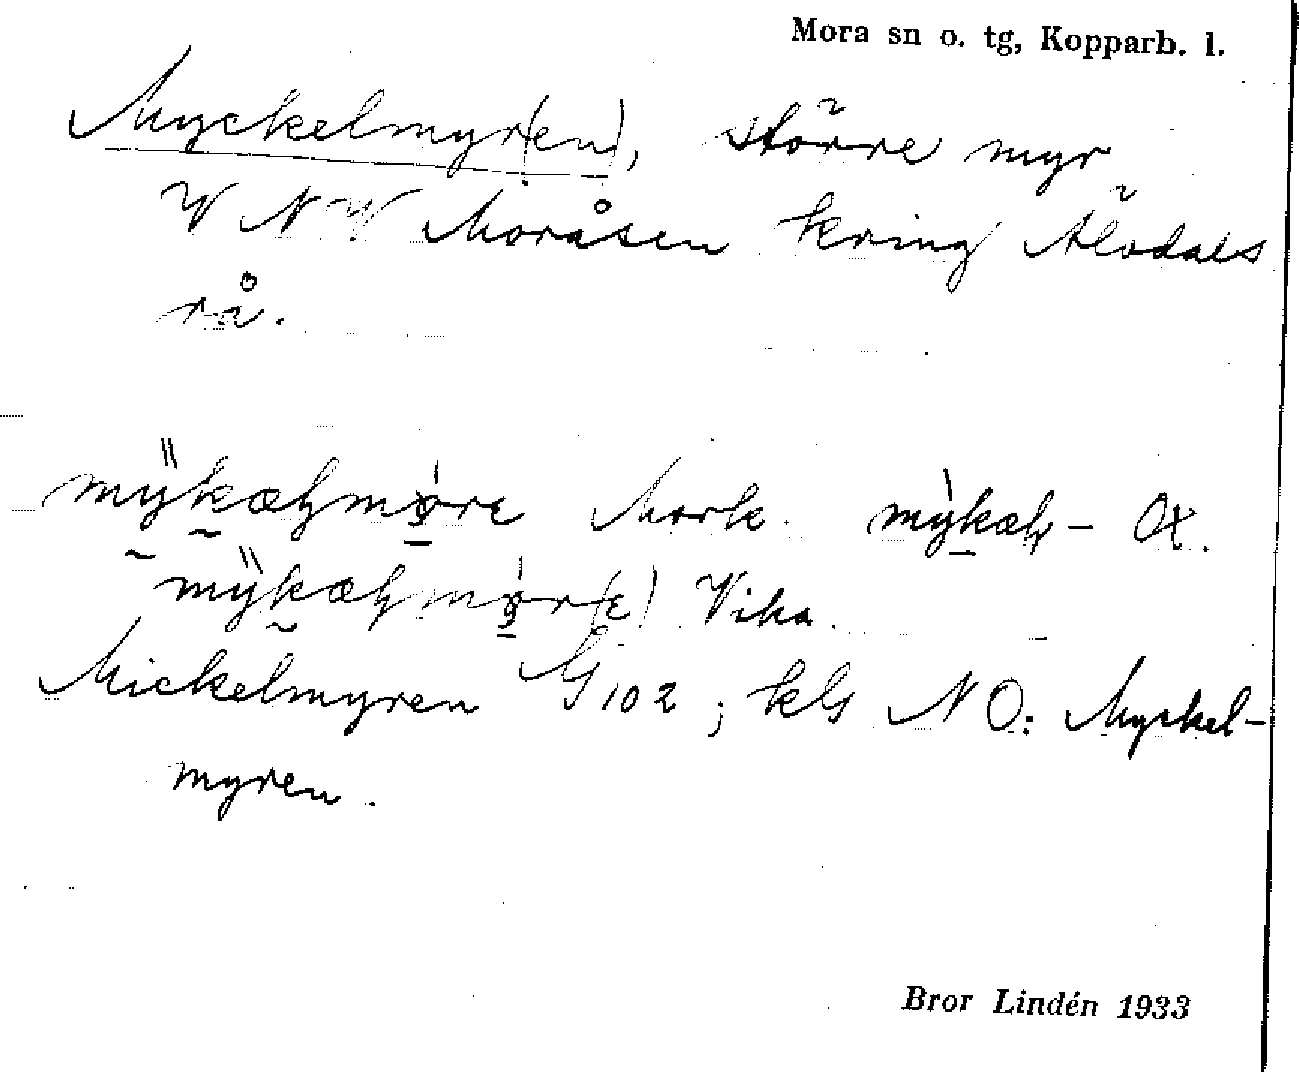 Mora sn o. tg, Kopparb. l.
Myckelmyr(en), större myr
V N V Moråsen kring Älvdals
rå.
mykælmøre Mork. mykæl- Ox.
mykælmør(e) Vika.
Mickelmyren G 102; kls NO: Myckel-
myren.
Bror Lindén 1933